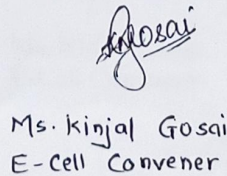 Ms. Kinjal Gosai
E-Cell Convener